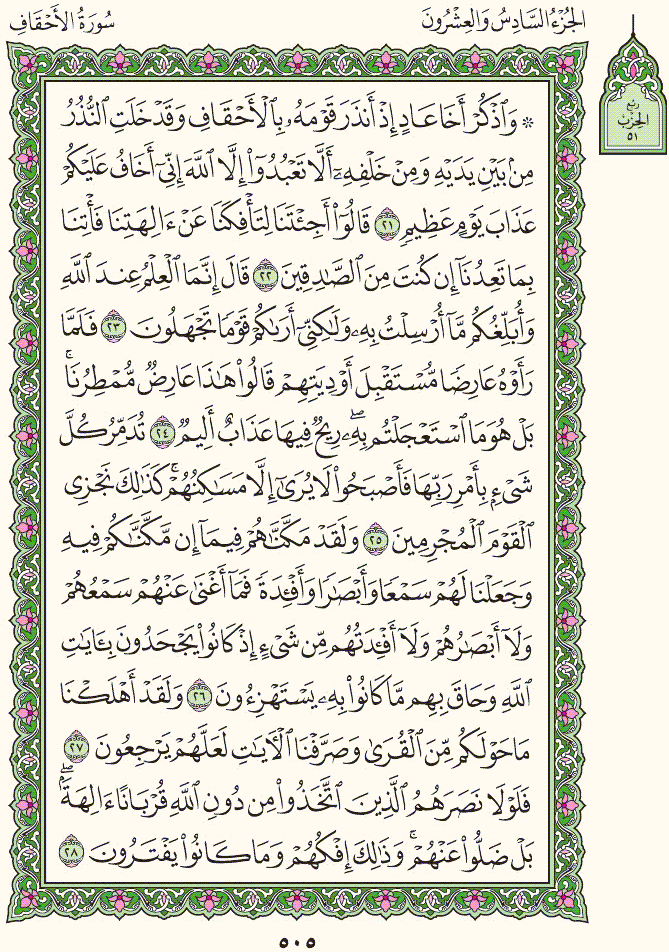 الجُزْءُ السَّادِسُ وَالعِشْرُونَ
سُورَةُ الأَحْقَافِ
رُبْع
الحِزْب
٥١
۞ وَٱذْكُرْ أَخَا عَادٍ إِذْ أَنذَرَ قَوْمَهُۥ بِٱلْأَحْقَافِ وَقَدْ خَلَتِ ٱلنُّذُرُ
مِنۢ بَيْنِ يَدَيْهِ وَمِنْ خَلْفِهِۦٓ أَلَّا تَعْبُدُوٓا۟ إِلَّا ٱللَّهَ إِنِّىٓ أَخَافُ عَلَيْكُمْ
عَذَابَ يَوْمٍ عَظِيمٍ ٢١ قَالُوٓا۟ أَجِئْتَنَا لِتَأْفِكَنَا عَنْ ءَالِهَتِنَا فَأْتِنَا
بِمَا تَعِدُنَآ إِن كُنتَ مِنَ ٱلصَّٰدِقِينَ ٢٢ قَالَ إِنَّمَا ٱلْعِلْمُ عِندَ ٱللَّهِ
وَأُبَلِّغُكُم مَّآ أُرْسِلْتُ بِهِۦ وَلَٰكِنِّىٓ أَرَىٰكُمْ قَوْمًا تَجْهَلُونَ ٢٣ فَلَمَّا
رَأَوْهُ عَارِضًا مُّسْتَقْبِلَ أَوْدِيَتِهِمْ قَالُوا۟ هَٰذَا عَارِضٌ مُّمْطِرُنَا ۚ
بَلْ هُوَ مَا ٱسْتَعْجَلْتُم بِهِۦ ۖ رِيحٌ فِيهَا عَذَابٌ أَلِيمٌ ٢٤ تُدَمِّرُ كُلَّ
شَىْءٍۭ بِأَمْرِ رَبِّهَا فَأَصْبَحُوا۟ لَا يُرَىٰٓ إِلَّا مَسَٰكِنُهُمْ ۚ كَذَٰلِكَ نَجْزِى
ٱلْقَوْمَ ٱلْمُجْرِمِينَ ٢٥ وَلَقَدْ مَكَّنَّٰهُمْ فِيمَآ إِن مَّكَّنَّٰكُمْ فِيهِ
وَجَعَلْنَا لَهُمْ سَمْعًا وَأَبْصَٰرًا وَأَفْـِٔدَةً فَمَآ أَغْنَىٰ عَنْهُمْ سَمْعُهُمْ
وَلَآ أَبْصَٰرُهُمْ وَلَآ أَفْـِٔدَتُهُم مِّن شَىْءٍ إِذْ كَانُوا۟ يَجْحَدُونَ بِـَٔايَٰتِ
ٱللَّهِ وَحَاقَ بِهِم مَّا كَانُوا۟ بِهِۦ يَسْتَهْزِءُونَ ٢٦ وَلَقَدْ أَهْلَكْنَا
مَا حَوْلَكُم مِّنَ ٱلْقُرَىٰ وَصَرَّفْنَا ٱلْـَٔايَٰتِ لَعَلَّهُمْ يَرْجِعُونَ ٢٧
فَلَوْلَا نَصَرَهُمُ ٱلَّذِينَ ٱتَّخَذُوا۟ مِن دُونِ ٱللَّهِ قُرْبَانًا ءَالِهَةًۢ ۖ
بَلْ ضَلُّوا۟ عَنْهُمْ ۚ وَذَٰلِكَ إِفْكُهُمْ وَمَا كَانُوا۟ يَفْتَرُونَ ٢٨
٥٠٥